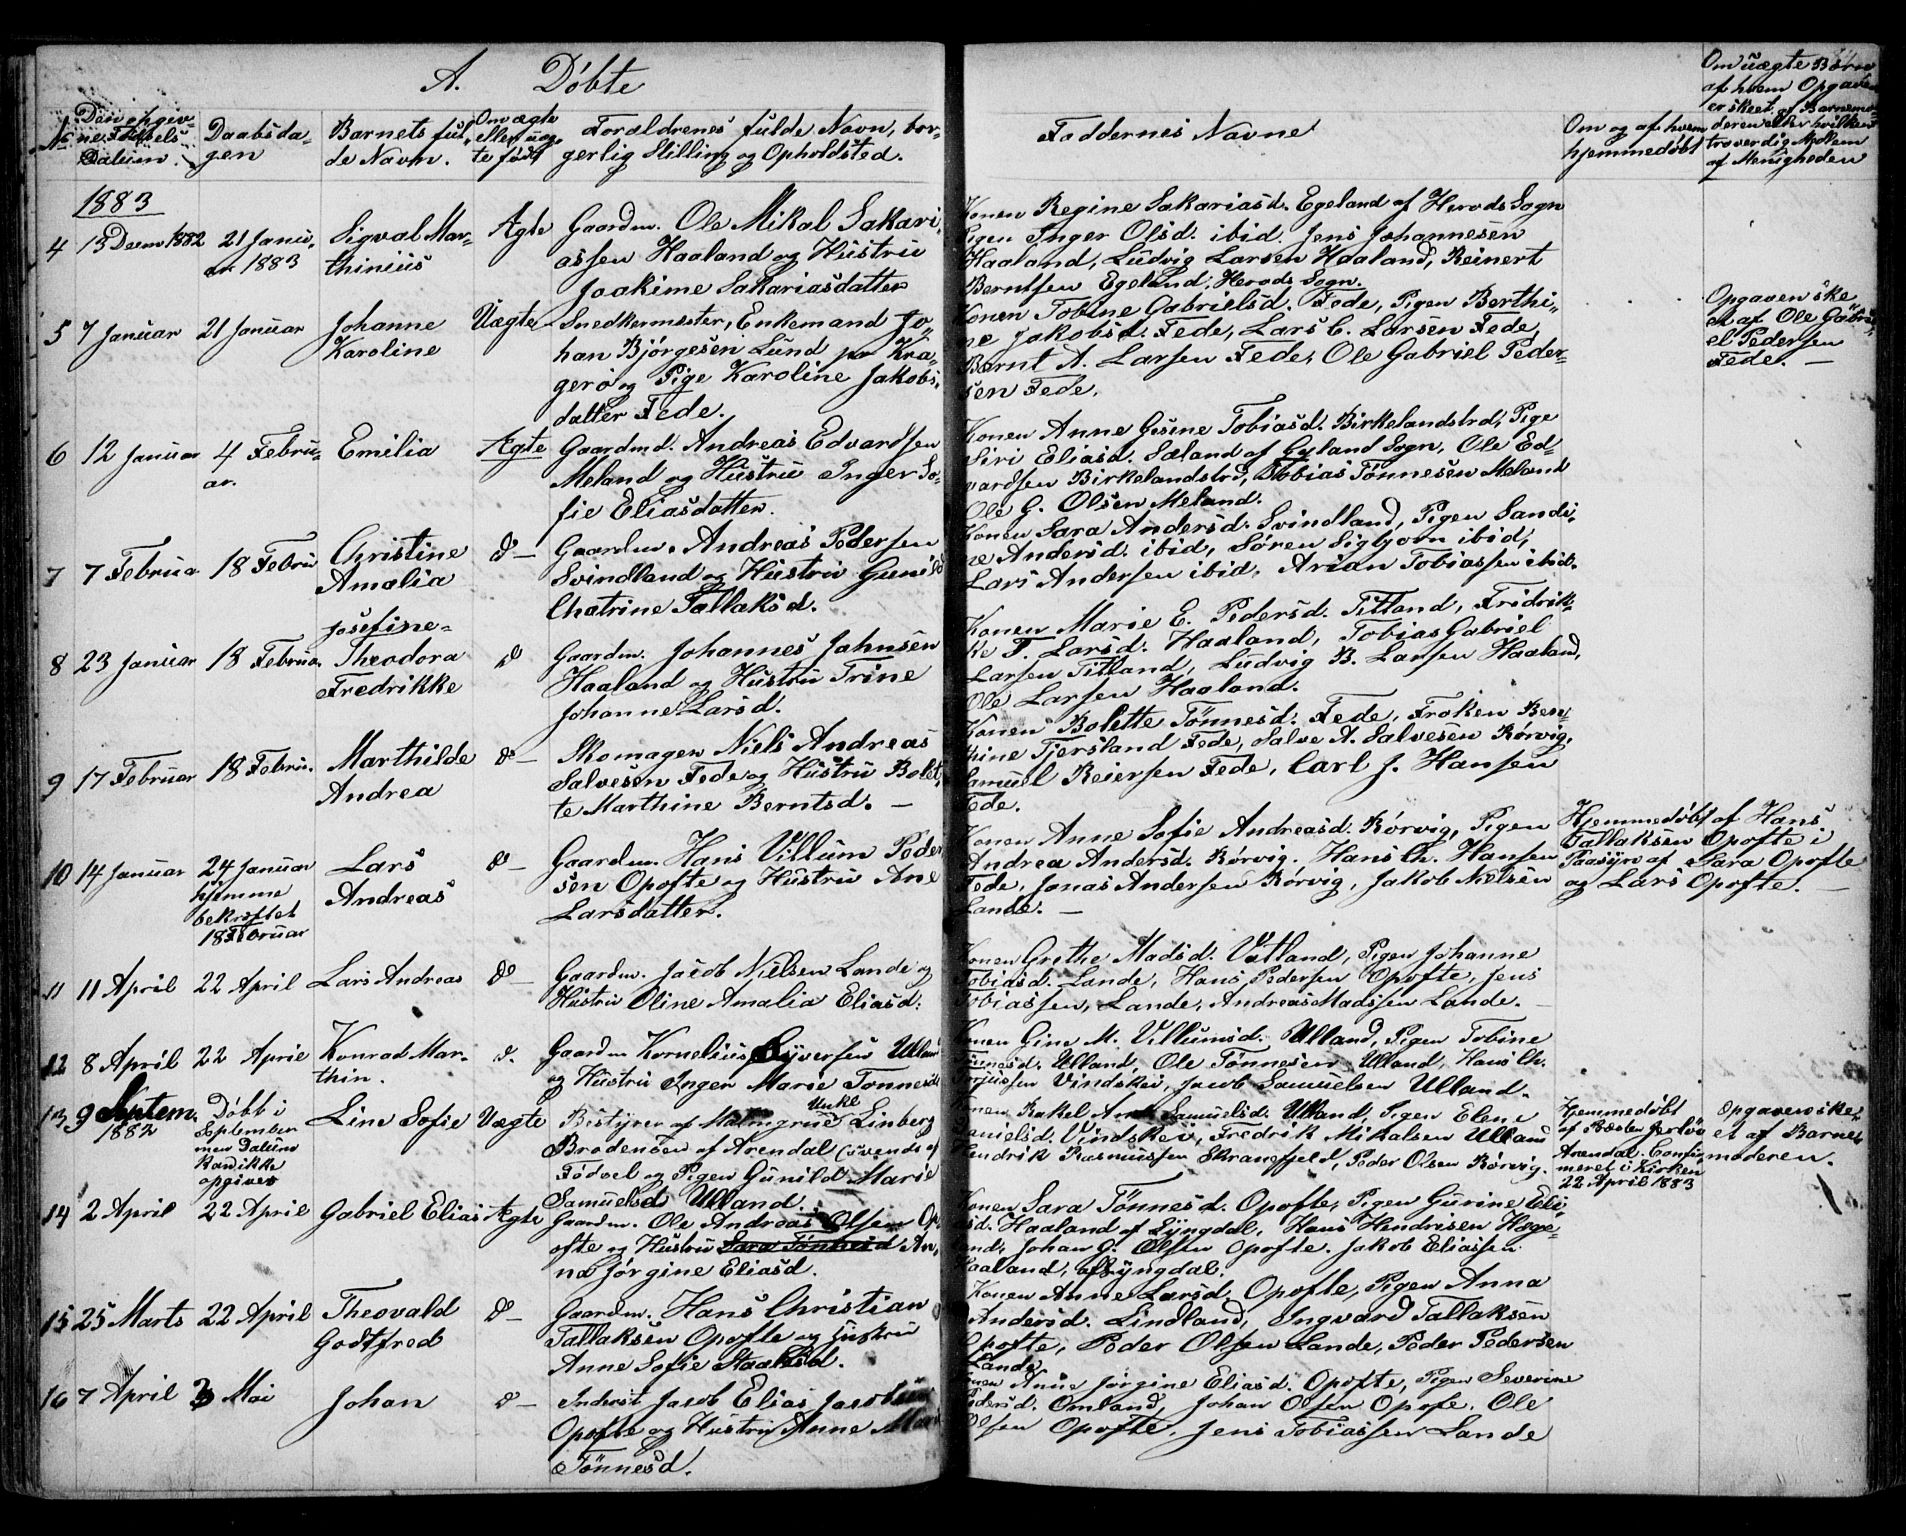 A. Døbte
No
Den opgiv-
ne Fødsels
Datum.
Daabsda-
gen
Barnets ful-
de Navn.
Om ægte
eller uæg-
te født
Forældrenes fulde Navn, bor-
gerlig Stilling og Opholdsted.
Faddernes Navne
Om og af hvem
hjemmedøbt
Om uægte Børn
af hvem Opgaven
er skeet, af Barnemo-
deren eller hvilken
troverdig Mand
af Menigheden
1883
4
13 Decem 1882
21 Janu-
ar 1883
Sigval Mar-
thinius
Ægte
Gaardm. Ole Mikal Sakari-
assen Haaland og Hustru
Joakime Sakariasdatter
Konen Regine Sakariasd. Egeland af Herods Sogn
Pigen Inger Olsd. ibid. Jens Johannesen
Haaland, Ludvig Larsen Haaland, Reinert
Berntsen Egeland, Herods Sogn.
5
7 Januar
21 Januar
Johanne
Karoline
Uægte
Snedkermester, Enkemand Jo-
han Bjørgesen Lund pr Kra-
gerø og Pige Karoline Jakobs-
datter Fede.
Konen Tobine Gabrielsd. Fede, Pigen Berthi-
ne Jakobsd. Fede, Lars C. Larsen Fede,
Bernt A. Larsen Fede, Ole Gabriel Peder-
sen Fede.
Opgaven ske
et af Ole Gabri-
el Pedersen
Fede. —
6
12 Januar
4 Febru-
ar.
Emilia
Ægte
Gaardmd. Andreas Edvardsen
Meland og Hustru Inger So-
fie Eliasdatter.
Konen Anne Gesine Tobiasd. Birkelandstrd, Pige
Siri Eliasd. Sæland af Gyland Sogn, Ole Ed-
vardsen Birkelandstrd, Tobias Tønnesen Meland
Ole G. Olsen Meland.
7
7 Februa
18 Febru
Christine
Amalia
Josefine-
do —
Gaardm. Andreas Pedersen
Svindland og Hustru Gunild
Chatrine Tallaksd.
Konen Sara Andersd. Svindland, Pigen Sandi-
ne Andersd. ibid, Søren Sigbjørn ibid,
Lars Andersen ibid. Arian Tobiassen ibid.
8
23 Januar
18 Februa.
Theodora
Fredrikke
do
Gaardm. Johannes Jahnsen
Haaland og Hustru Trine
Johanne Larsd.
Konen Marie E. Pedersd. Titland, Fridrik-
ke F. Larsd. Haaland, Tobias Gabriel
Larsen Titland, Ludvig B. Larsen Haaland,
Ole Larsen Haaland.
9
17 Februar
18 Febru.
Marthilde
Andrea
do —
Skomager Niels Andreas
Salvesen Fede og Hustru Bolet-
te Marthine Berntsd. —
Konen Bolette Tønnesd. Fede, Frøken Ben-
thine Tjersland Fede, Salve A. Salvesen Rørvig,
Samuel Reiersen Fede, Carl J. Hansen
Fede.
10
14 Januar
24 Januar
hjemme
bekræftet
18 Februar
Lars
Andreas
do —
Gaardm. Hans Villum Peder
sen Opofte og Hustru Ane
Larsdatter.
Konen Anne Sofie Andreasd. Rørvig, Pigen
Andrea Andersd. Rørvig. Hans Ch. Hansen
Fede, Jonas Andersen Rørvig, Jakob Nielsen
Lande. —
Hjemmedøbt af Hans
Tallaksen Opofte i
Paasyn af Sara Opofte
og Lars Opofte. —
11
11 April
22 April
Lars Andreas
do —
Gaardm. Jacob Nielsen Lande og
Hustru Oline Amalia Eliasd.
Konen Grethe Madsd. Vatland, Pigen Johanne
Tobiasd. Lande, Hans Pedersen Opofte, Jens
Tobiassen, Lande, Andreas Madssen Lande. —
12
8 April
22 April
Konrad Mar-
thin.
do.
Gaardm Kornelius Syversen Ulland
og Hustru Inger Marie Tønnesd
Konen Gine M. Villumsd. Ulland, Pigen Tobine
Tønnesd. Ulland, Ole Tønnesen Ulland, Hans Ch.
Vindskei, Jacob Samuelsen Ulland.
13
9 Septem.
1882
Døbt i
September
men Datum
kan ikke
opgives
Line Sofie
Uægte
Bestyrer af Malmgrue Linberg
Brodensen af Arendal
Fødvel og Pigen Gunild Marie
Samuelsd Ulland
Konen Rakel Samuelsd. Ulland, Pigen Elene
Danielsd. Vindskei, Fredrik Mikalsen Ulland
Hendrik Rasmussen Skranefjeld, Peder Olsen Rørvig.
Hjemmedøbt
af Præsten
Arendal. Confir-
meret i Kirken
22 April 1883
Opgaven ske-
et af Barne-
moderen.
14
2 April
22 April
Gabriel Elias
Ægte
Gaardm. Ole Andreas Olsen Op-
ofte og Hustru Sara Tønnesd An-
na Jørgine Eliasd.
Konen Sara Tønnesd. Opofte, Pigen Gurine Eli-
asd. Haaland af Lyngdal, Hans Hendrisen Hæge-
land, Johan G. Olsen Opofte. Jakob Eliassen
Haaland, af Lyngdal.
15
25 Marts
22 April
Theovald
Godtfred
do —
Gaardm. Hans Christian
Tallaksen Opofte og Hustru
Anne Sofie Isaksd.
Konen Anne Larsd. Opofte, Pigen Anna
Andersd. Lindland, Ingvard Tallaksen
Opofte, Peder Olsen Lande, Peder Pedersen
Lande
16
7 April
3 Mai
Johan
do —
Inderst Jacob Elias Jacobsen
Opofte og Hustru Anne
Tønnesd.
Konen Anne Jørgine Eliasd. Opofte, Pigen Severine
Pedersd. Omland, Johan Olsen Opofte. Ole
Olsen Opofte, Jens Tobiassen Lande